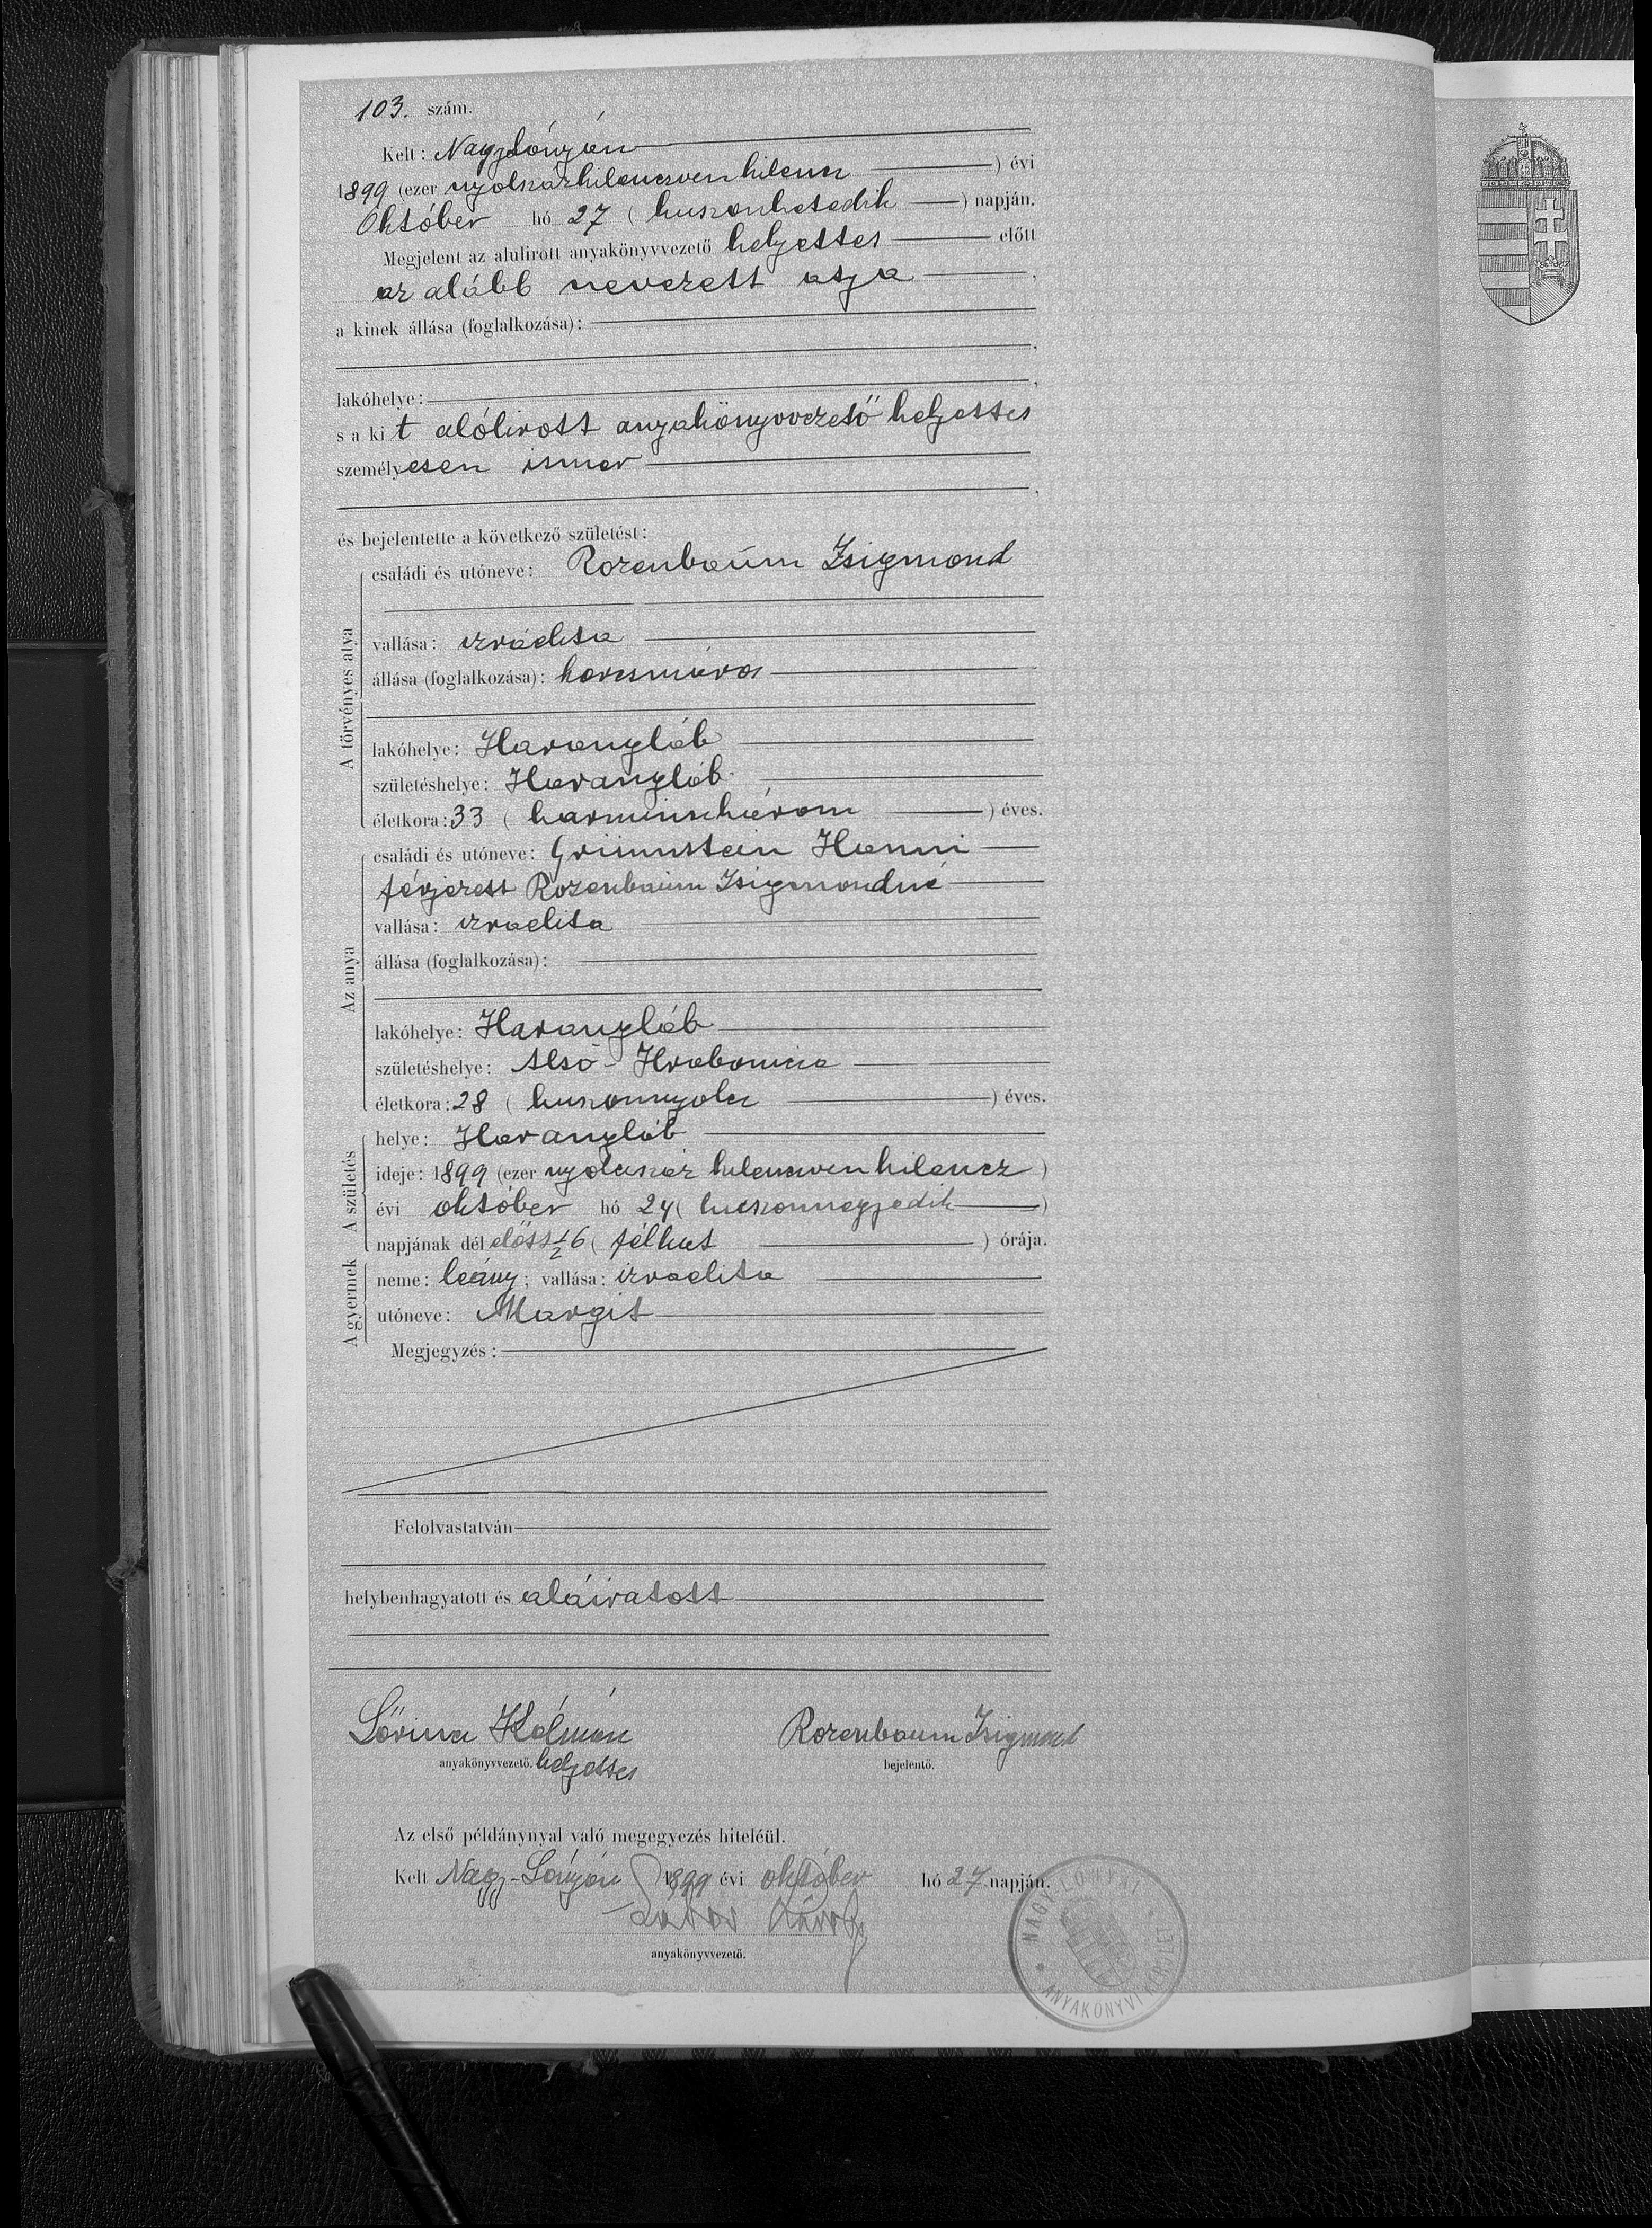 103. szám.
Kelt: Nagylónyán
1899 (ezer nyolczázkilenczvenkilencz) évi
Október hó 27 (huszonhetedik) napján.
Megjelent az alulirott anyakönyvvezető helyettes előtt
az alább nevezett atya,
a kinek állása (foglalkozása):
lakóhelye:
s a kit alólirott anyakönyvvezető helyettes
személyesen ismer
és bejelentette a következő születést:
A törvényes atya
családi és utóneve: Rozenbaum Zsigmond
vallása: izraelita
állása (foglalkozása): korcsmáros
lakóhelye: Harangláb
születéshelye: Harangláb
életkora: 33 (harminczhárom) éves.
Az anya
családi és utóneve: Grünnstein Hanni
férjezett Rozenbaum Zsigmondné
vallása: izraelita
állása (foglalkozása):
lakóhelye: Harangláb
születéshelye: Alsó-Hrabonicza
életkora: 28 (huszonnyolcz) éves.
A születés
helye: Harangláb
ideje: 1899 (ezer nyolczáz kilenczvenkilencz)
évi október hó 24 (huszonnegyedik)
napjának dél előtt ½6 (félhat) órája.
A gyermek
neme: leány; vallása: izraelita
utóneve: Margit
Megjegyzés:
Felolvastatván
helybenhagyatott és aláiratott
Lőrincz Kálmán
anyakönyvvezető. helyettes
Rozenbaum Zsigmond
bejelentő.
Az első példánynyal való megegyezés hiteléül.
Kelt Nagy-Lónyán 1899 évi október hó 27 napján.
anyakönyvvezető.
NAGY LÓNYAI
ANYAKÖNYVI KERÜLET